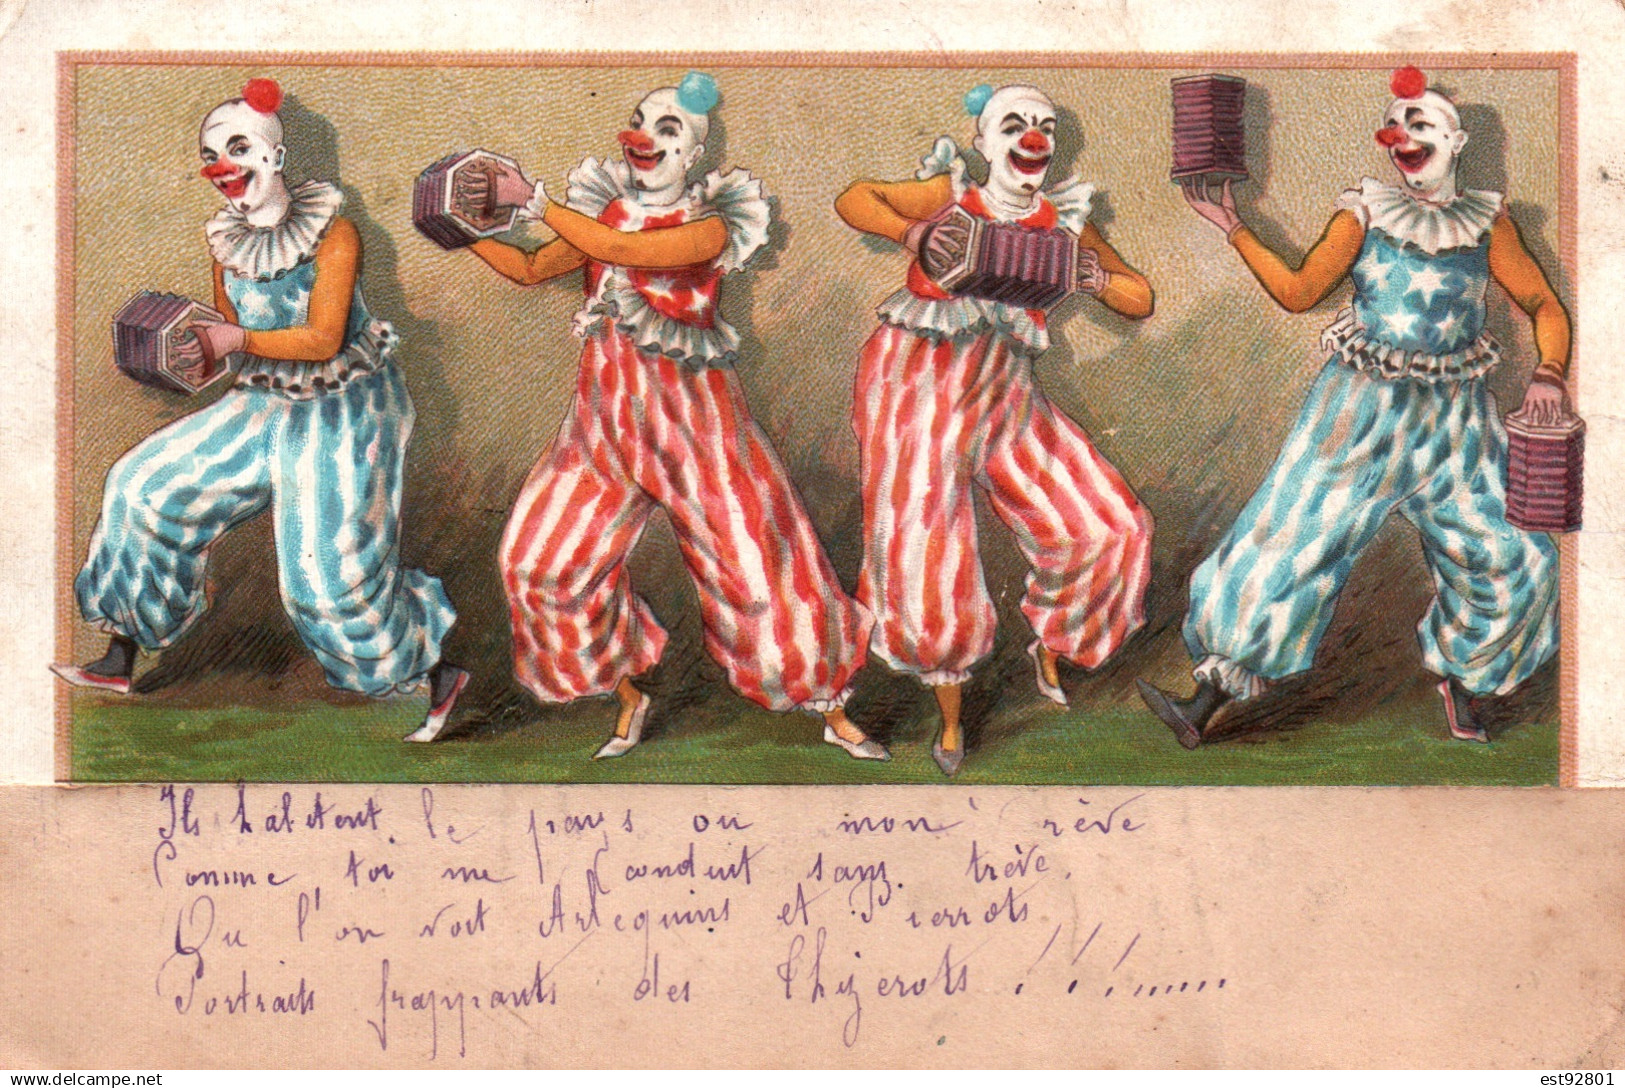 Ils habitent le pays ou mon rêve
Comme toi me conduit sans trève.
Ou l'on voit Arlequins et Pierrots
Portraits frappants des Thizerots !!!......
delcampe.net
est92801